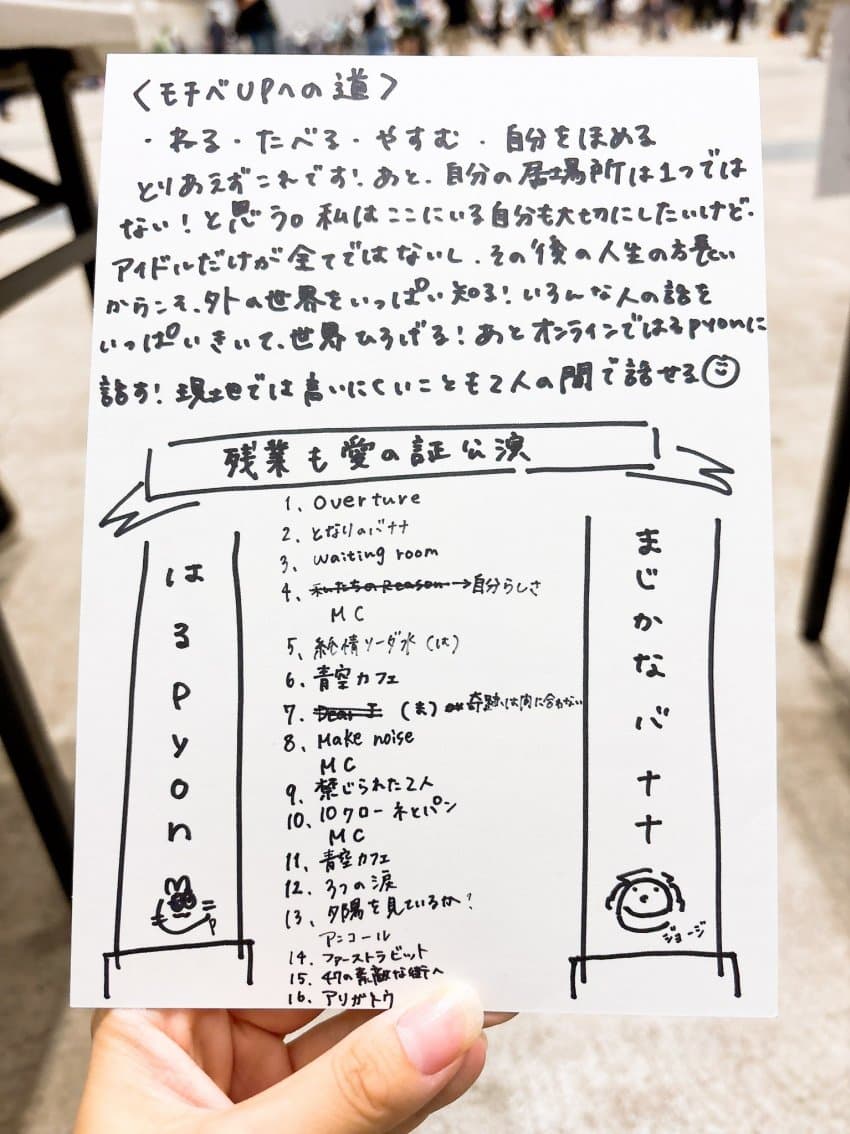 〈モチベUPへの道〉
・ねる・たべる・やすむ・自分をほめる
とりあえずこれです!あと、自分の居場所は1つでは
ない!と思う。私はここにいる自分も大切にしたいけど、
アイドルだけが全てではないし、その後の人生の方長い
からこそ、外の世界をいっぱい知る!いろんな人の話を
いっぱいきいて、世界ひろげる!あとオンラインではるpyonに
話す!現地では言いにくいことも2人の間で話せる
残業も愛の証公演
はるpyon
P
1、overture
2、となりのバナナ
3、waiting room
4、私たちのReason→自分らしさ
MC
5、純情ソーダ水(は)
6、青空カフェ
7、Dear J (ま) 奇跡は間に合わない
8、Make noise
MC
9、禁じられた2人
10、10クローネとパン
MC
11、青空カフェ
12、3つの涙
13、夕陽を見ているか?
アンコール
14、ファーストラビット
15、47の素敵な街へ
16、アリガトウ
まじかなバナナ
ジョージ